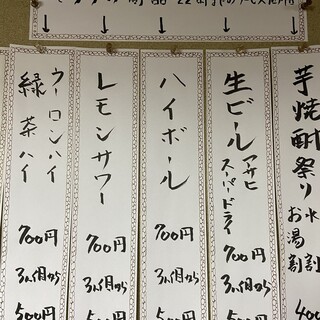 芋焼酎祭り
水割
お湯割
400
生ビール
アサヒ
スーパードライ
700円
3杯目から
500円
ハイボール
700円
3杯目から
500円
レモンサワー
700円
3杯目から
500円
ウーロンハイ
緑茶ハイ
700円
3杯目から
500円